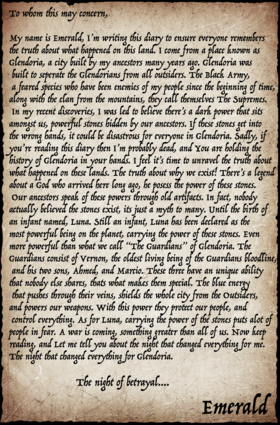 To whom this may concern,
My name is Emerald, I'm writing this diary to ensure everyone remembers
the truth about what happened on this land. I come from a place known as
Glendoria, a city built by my ancestors many years ago. Glendoria was
built to seperate the Glendorians from all outsiders. The Black Army,
a feared species who have been enemies of my people since the beginning of time,
along with the clan from the mountains, they call themselves The Supremes.
In my recent discoveries, I was led to believe there's a dark power that sits
amongst us, powerful stones hidden by our ancestors. If these stones get into
the wrong hands, it could be disastrous for everyone in Glendoria. Sadly, if
you're reading this diary then I'm probably dead, and You are holding the
history of Glendoria in your hands. I feel it's time to unravel the truth about
what happened on these lands. The truth about why we exist! There's a legend
about a God who arrived here long ago, he posses the power of these stones.
Our ancestors speak of these powers through old artifacts. In fact, nobody
actually believed the stones exist, its just a myth to many. Until the birth of
an infant named, Luna. Still an infant, Luna has been declared as the
most powerful being on the planet, carrying the power of these stones. Even
more powerful than what we call "The Guardians" of Glendoria. The
Guardians consist of Vernon, the oldest living being of the Guardians bloodline,
and his two sons, Ahmed, and Marcio. These three have an unique ability
that nobody else shares, thats what makes them special. The blue energy
that pushes through their veins, shields the whole city from the Outsiders,
and powers our weapons. With this power they protect our people, and
control everything. As for Luna, carrying the power of the stones puts alot of
people in fear. A war is coming, something greater than all of us. Now keep
reading, and Let me tell you about the night that changed everything for me.
The night that changed everything for Glendoria.
The night of betrayal....
Emerald